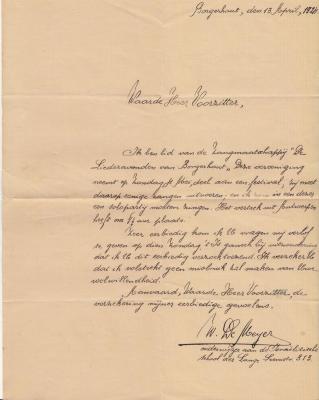 Borgerhout, den 13 April, 1921.
Waarde Heer Voorzitter,
Ik ben lid van de Zangmaatschappij "De
Liederavonden van Borgerhout". Deze vereeniging
neemt op Zondag deel aan een festival, zij moet
daarop eenige zangen uitvoeren, en ik in een dezer
een solopartij moeten zingen. Het vertrek uit Antwerpen
heeft om uur plaats.
Zeer eerbiedig kom ik Ul. vragen mij verlof
te geven op dien Zondag
dat ik Ul. dit eerbiedig verzoek toezend. Ik verzeker Ul.
dat ik volstrekt geen misbruik zal maken van Uwe
welwillendheid.
Aanvaard, Waarde Heer Voorzitter, de
verzekering mijner eerbiedige gevoelens.
W. De Meyer
onderwijzer aan de
school der Lange Leemstr. 313.